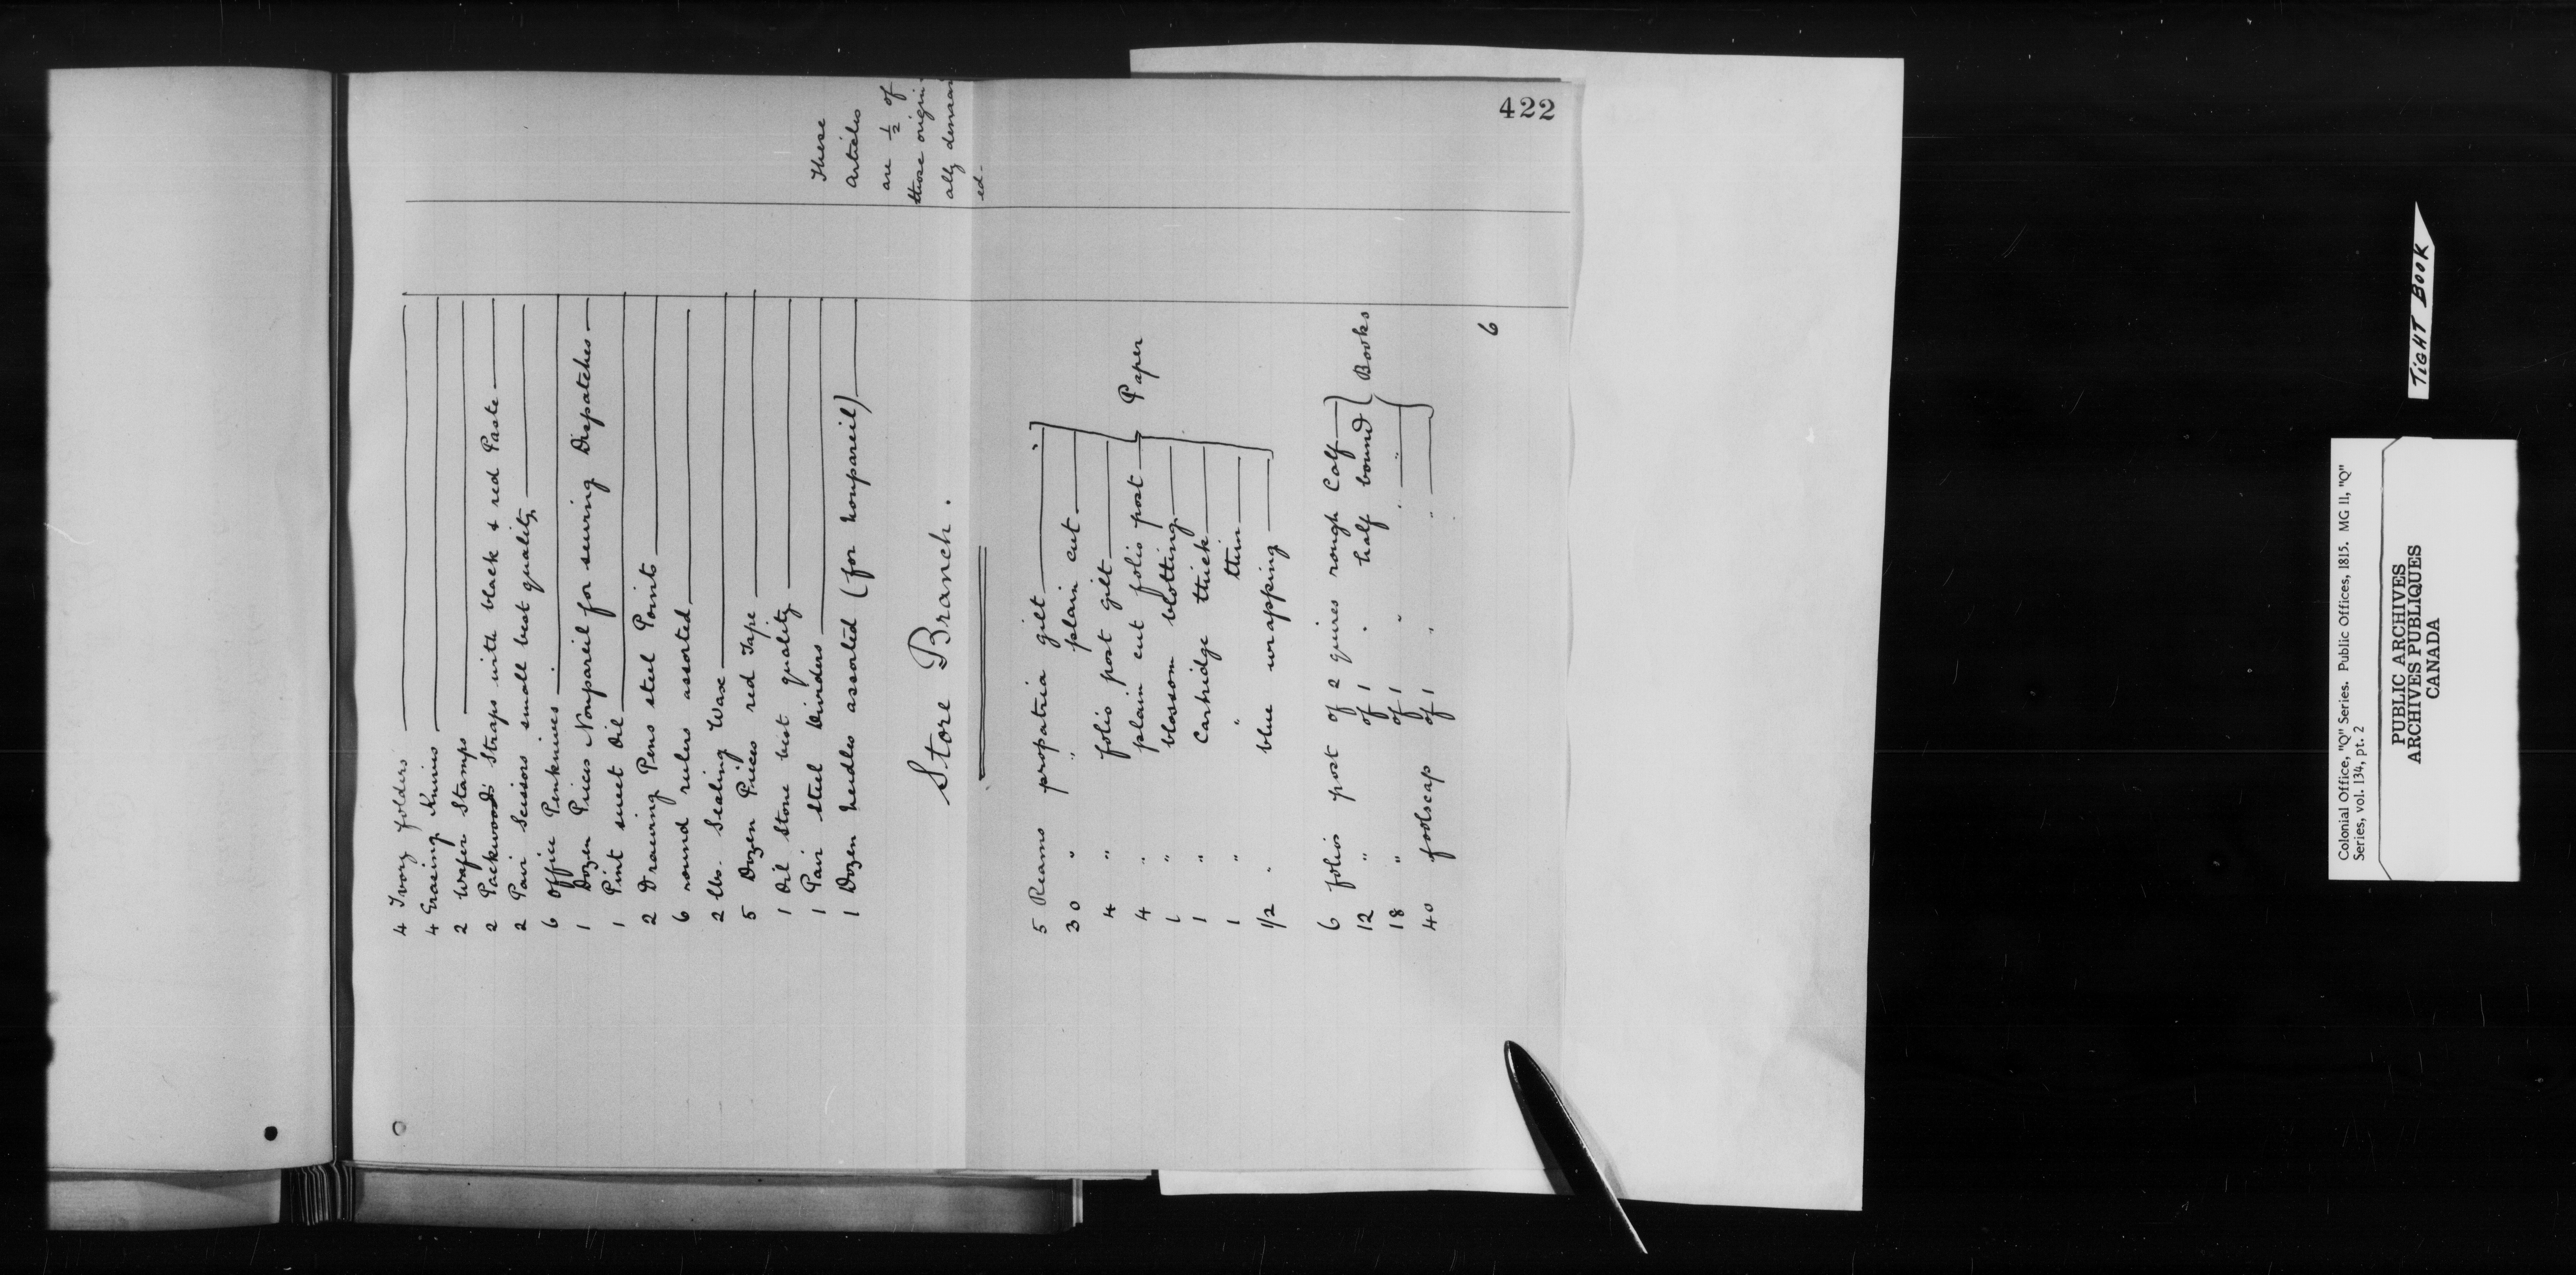 422
4 Ivory folders
4 Erasing Knives
2 Wafer Stamps
2 Packwood's Straps with black & red Paste
2 Pair Scissors small best quality
6 Office Penknives
1 Dozen Pieces Nonpareil for sewing Dispatches
1 Pint sweet Oil
2 Drawing Pens steel Points
6 round rulers assorted
2 lbs. Sealing Wax
5 Dozen Pieces red Tape
1 Oil Stone best quality
1 Pair steel Dividers
1 Dozen needles assorted (for nonpareil)
These
Articles
are ½ of
those origin-
ally demand
ed-
Store Branch.
5 Reams propatria gilt
30 " " plain cut
4 " folio post gilt
4 " plain cut folio post
1 " blossom blotting
1 " Cartridge thick
1 " " thin
1/2 " blue wrapping
Paper
6 folio post of 2 quires rough Calf
12 " of 1 " half bound
18 " of 1 " " "
40 foolscap of 1 " "
Books
6
TIGHT BOOK
Colonial Office, "Q" Series. Public Offices, 1815. MG 11, "Q"
Series, vol. 134, pt. 2
PUBLIC ARCHIVES
ARCHIVES PUBLIQUES
CANADA